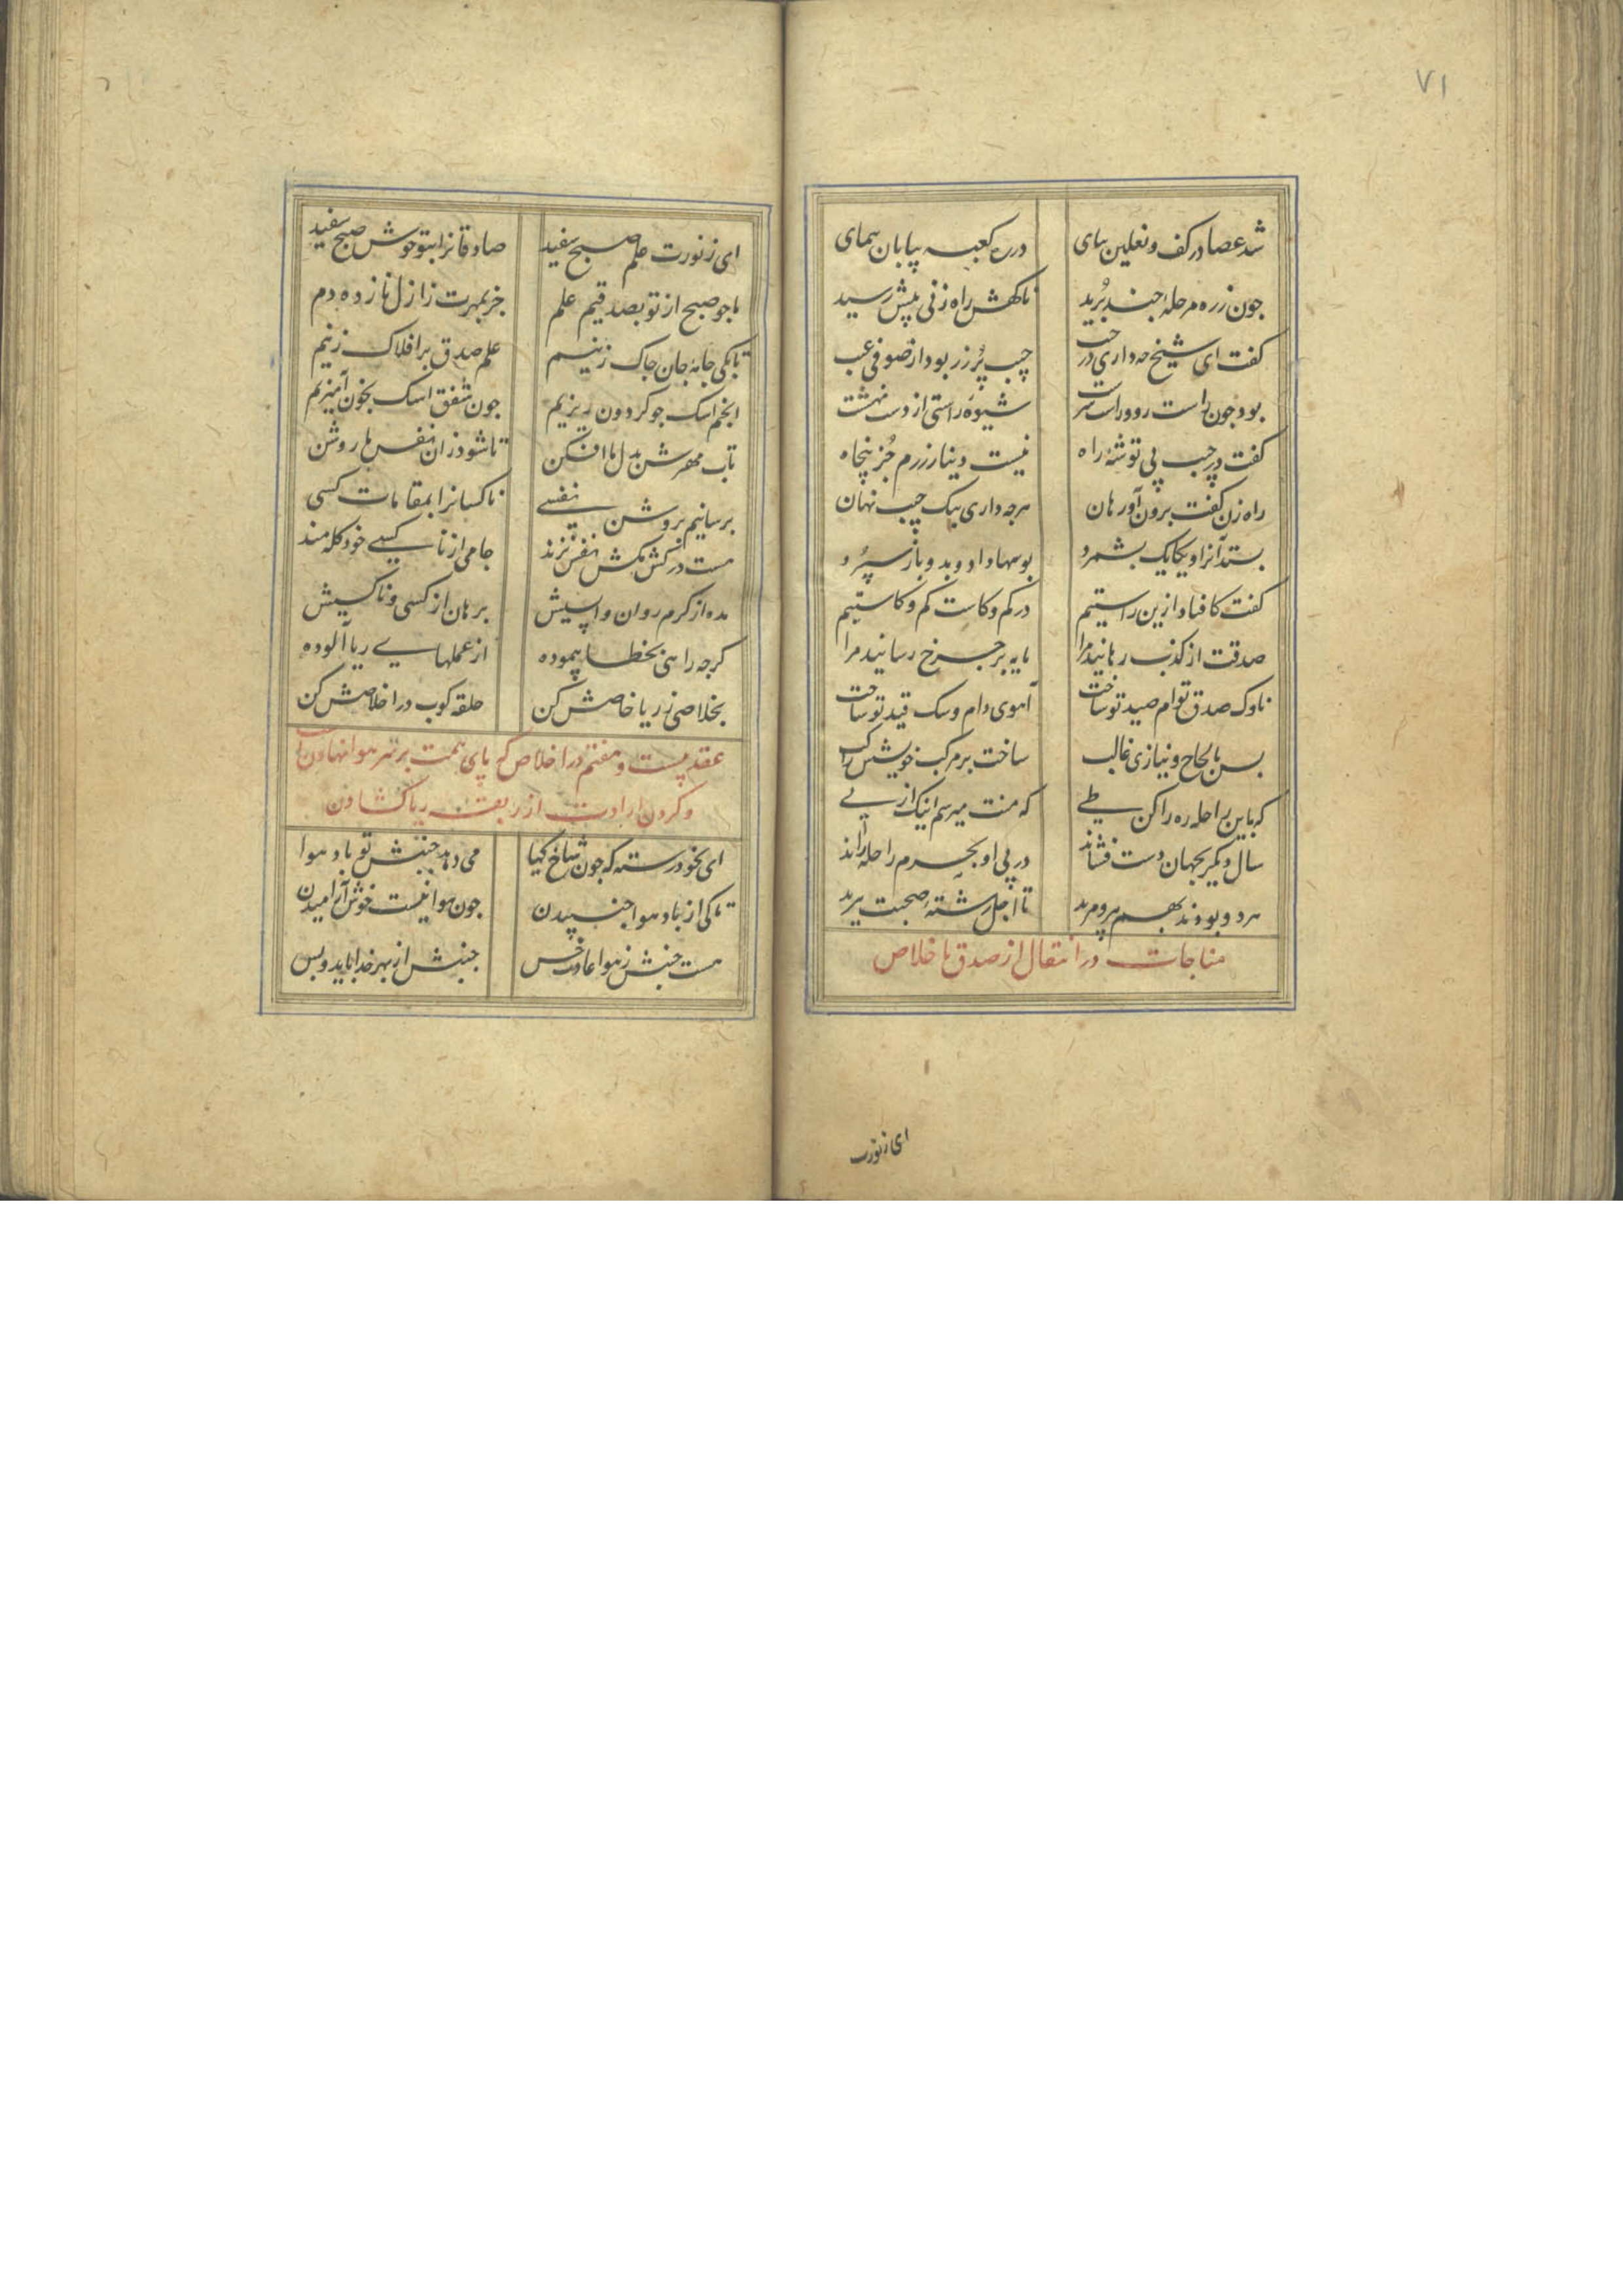 ۷۱
شد عصا در کف و نعلین بپای در ره کعبه بیابان پیمای
جون ز ره مرحلهٔ جند برید ناکهش راه زنی پیش رسید
کفت ای شیخ چه داری در جیب جیب پر زر بود از صوفی عیب
بود جون راست رو و راست سرشت شیوهٔ راستی از دست نهشت
کفت در جیب پی توشهٔ راه نیست دینار زرم جز پنجاه
راه زن کفت برون آور هان هرجه داری بیک جیب نهان
بستد آنرا و یکایک بشمرد بوسها داد و بدو باز سپرد
کفت کافتاد ازین راستیم در کم و کاست کم و کاستیم
صدقت از کذب رهانید مرا پایه بر جرخ رسانید مرا
ناوک صدق توام صید تو ساخت آهوی دام و سک قید تو ساخت
بس بالحاح و نیازی غالب ساخت بر مرکب خویشش راکب
که باین راحله ره را کن طی که منت میرسم اینک از پی
سال دیکر بجهان دست فشاند در پی او بحرم راحله راند
هر دو بودند بهم پیر و مرید تا اجل رشتهٔ صحبت ببرید
مناجات در انتقال از صدق باخلاص
ای ز نورت
ای ز نورت علم صبح سفید صادقانرا بتو خوش صبح سفید
ما جو صبح از تو بصدقیم علم جز بمهرت ز ازل نازده دم
تا بکی جامهٔ جان جاک زنیم علم صدق بر افلاک زنیم
انجم اشک جو کردون ریزیم جون شفق اشک بخون آمیزیم
تاب مهرش بدل ما افکن تا شود زان نفس ما روشن
برسانیم بروشن نفسی ناکسانرا بمقامات کسی
هست در کش مکش نفس نژند جامی از ناکسی خود کله مند
مده از کرم روان واپسیش برهان از کسی و ناکسیش
کرجه راهی بخطا پیموده از عملهای ریا آلوده
بخلاصی ز ریا خاصش کن حلقه کوب در اخلاصش کن
عقد بیست و هفتم در اخلاص که پای همت بر سر هوا نهادن است
و کردن ارادت از ربقهٔ ریا کشادن
ای بخود رسته که جون شاخ کیا می دهد جنبش تو باد هوا
تا کی از باد هوا جنبیدن جون هوا نیست خوش آرامیدن
هست جنبش ز هوا عادت خس جنبش از بهر خدا باید و بس